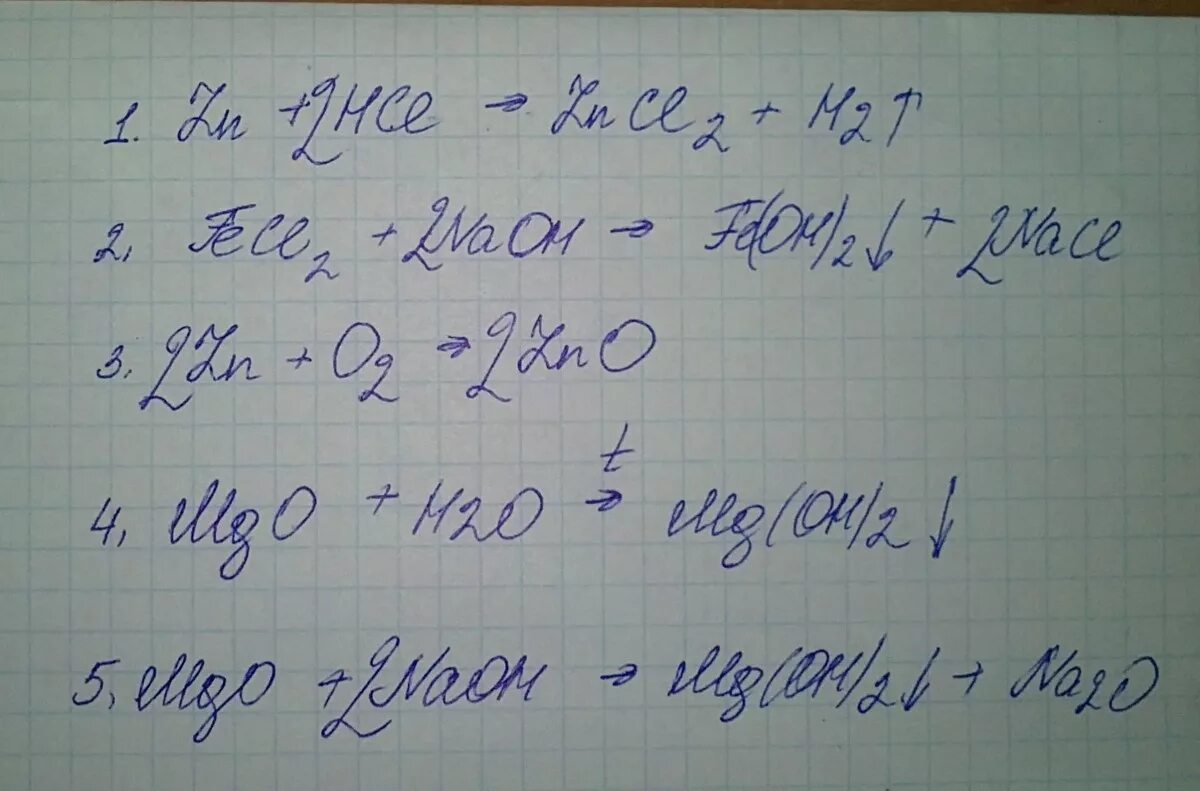 1. Zn + 2HCl → ZnCl2 + H2↑
2, FeCl2 + 2NaOH → Fe(OH)2↓ + 2NaCl
3, 2Zn + O2 → 2ZnO
t
4, MgO + H2O → Mg(OH)2↓
5, MgO + 2NaOH → Mg(OH)2↓ + Na2O